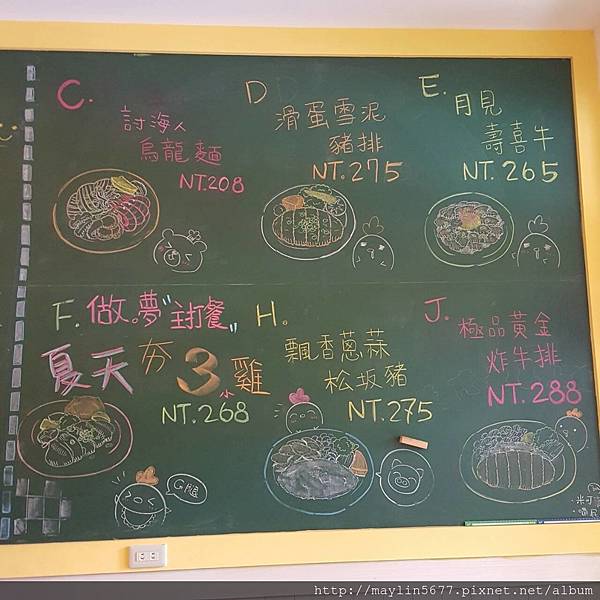 C.
討海人
烏龍麵
NT.208
D
滑蛋雪泥
豬排
NT.275
E.
月見
壽喜牛
NT.265
F. 做。夢"主打餐"
夏天夯3小雞
NT.268
H。
飄香蔥蒜
松坂豬
NT.275
J.
極品黃金
炸牛排
NT.288
http://maylin5677.pixnet.net/album